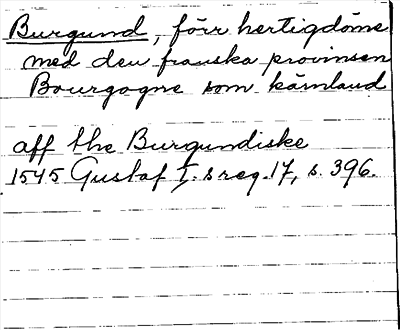 Burgund, förr hertigdöme
med den franska provinsen
Bourgogne som kärnland
aff the Burgundiske
1545 Gustaf I:s reg. 17, s. 396.